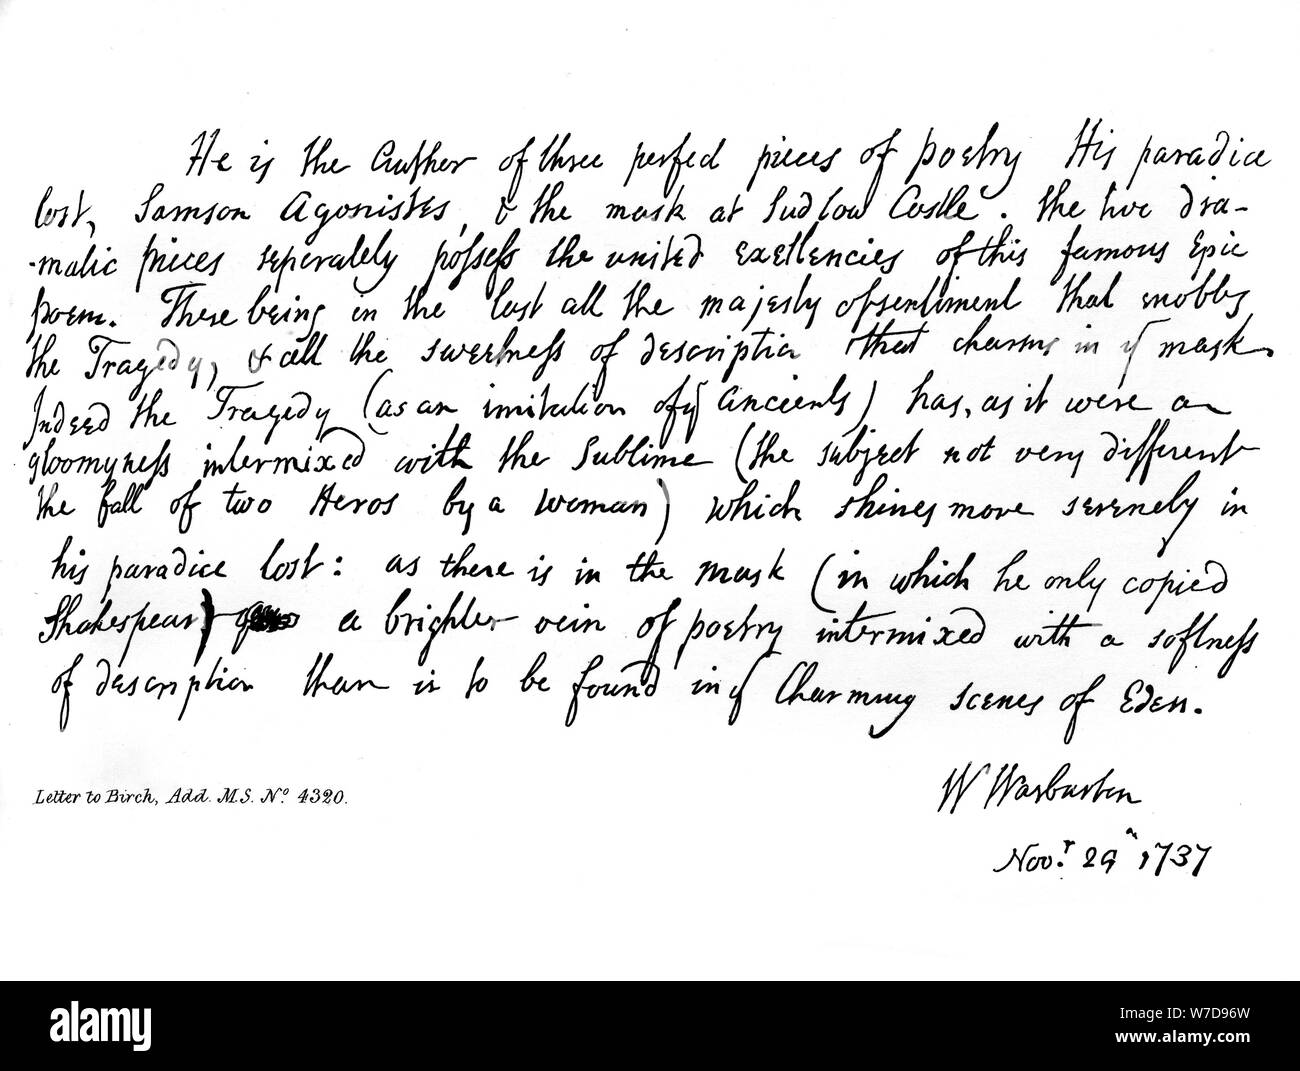 He is the Author of three perfect pieces of poetry His paradice
lost, Samson Agonistes, & the mask at Ludlow Castle. the two dra-
-matic pieces seperately possess the united excellencies of this famous Epic
poem. There being in the last all the majesty of sentiment that enobles
the Tragedy, & all the sweetness of description that charms in ye mask.
Indeed the Tragedy (as an imitation of ye Ancients) has, as it were a
gloomyness intermixed with the Sublime (the subject not very different
the fall of two Heros by a woman) which shines more serenely in
his paradice lost: as there is in the mask (in which he only copied
Shakespear) a brighter vein of poetry intermixed with a softness
of description than is to be found in ye Charming scenes of Eden.
W Warburton
Letter to Birch, Add. M.S. No. 4320.
Novr. 29 1737
alamy
a
alamy
Image ID: W7D96W
www.alamy.com